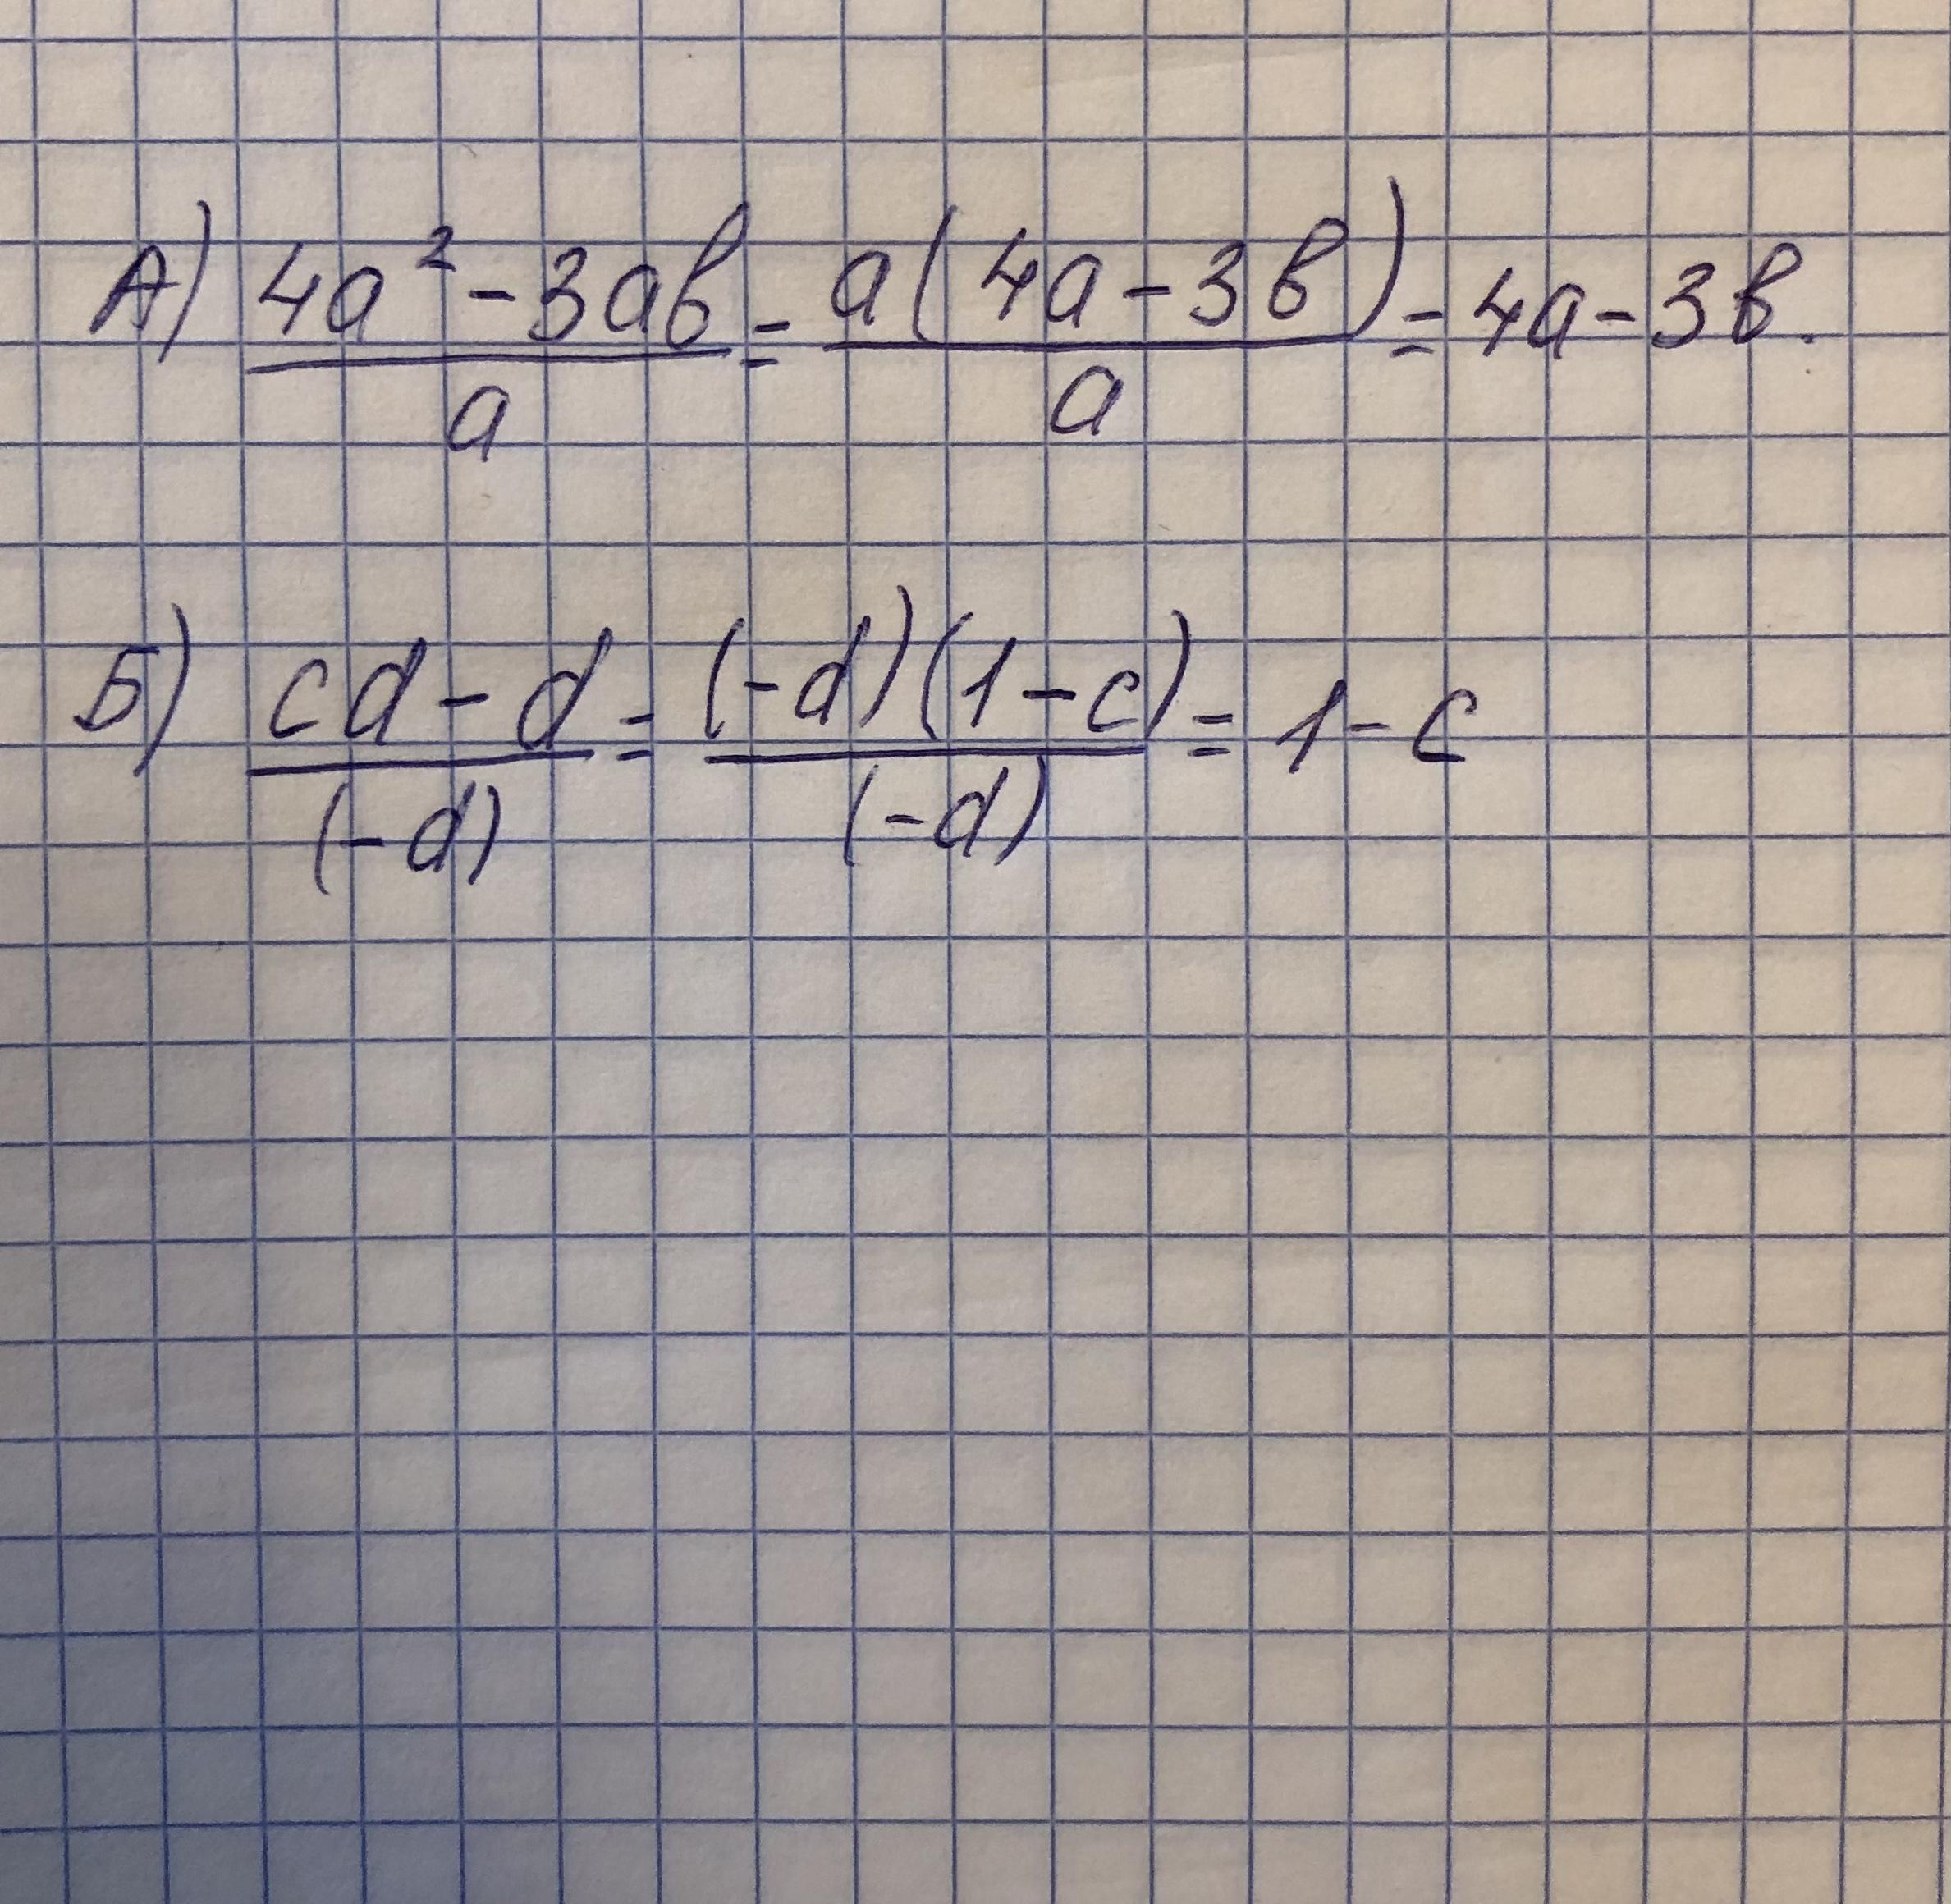 А) (4a² - 3aв)/a = a(4a - 3в)/a = 4a - 3в.
Б) (cd - d)/(-d) = (-d)(1 - c)/(-d) = 1 - c